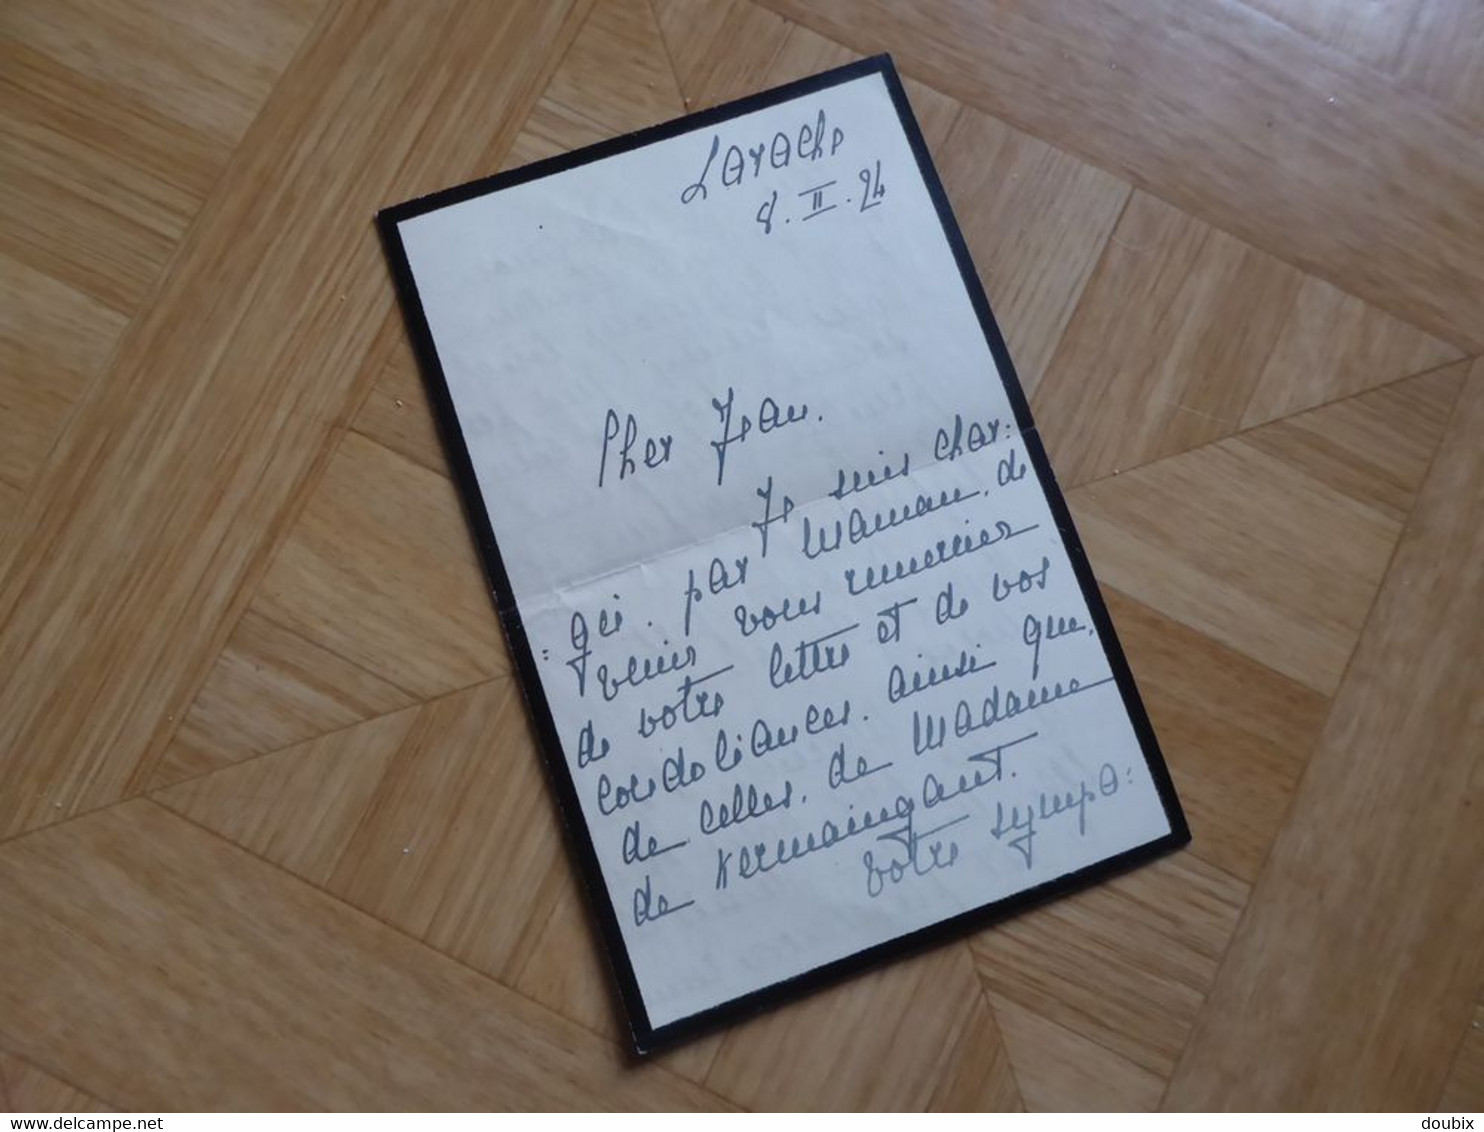 Larache
8. II. 24
Cher Jean.
Je suis char:
:gée. par Maman. de
venir vous remercier
de votre lettre et de vos
condoléances. ainsi que.
de celles. de Madame
de Kermaingant.
Votre sympa:
www.delcampe.net
doubix